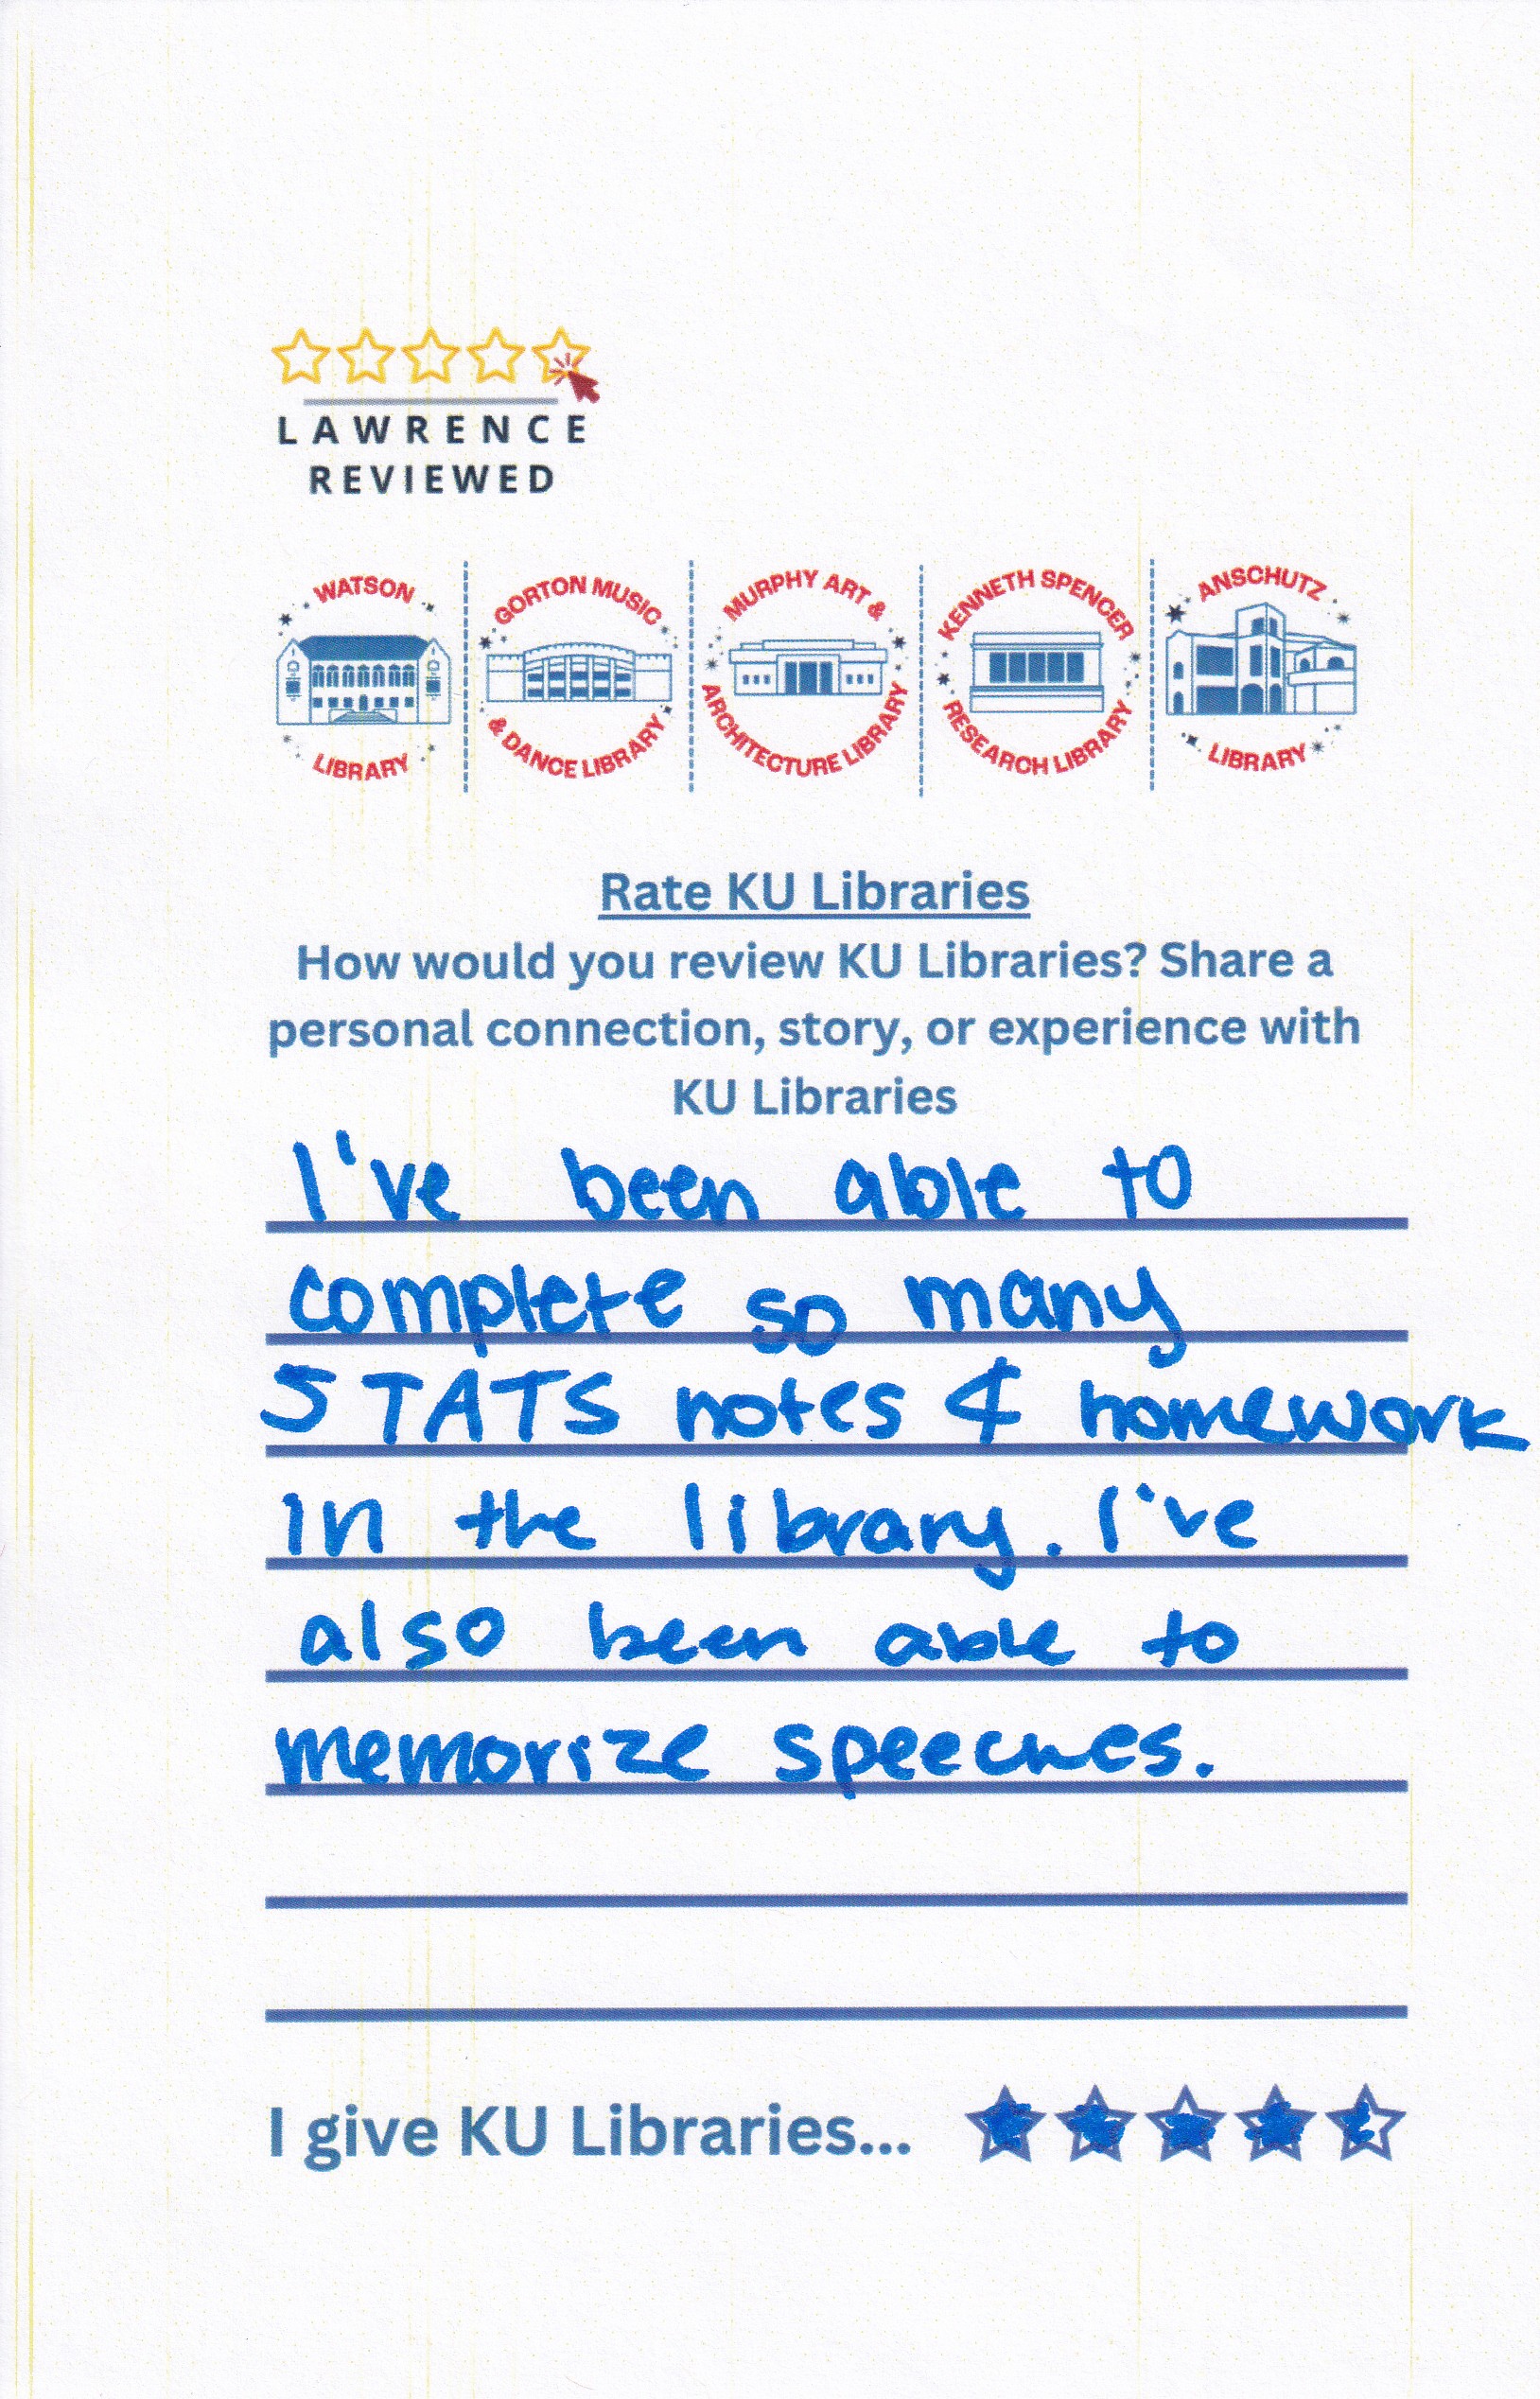 LAWRENCE
REVIEWED
WATSON
LIBRARY
GORTON MUSIC
& DANCE LIBRARY
MURPHY ART &
ARCHITECTURE LIBRARY
KENNETH SPENCER
RESEARCH LIBRARY
ANSCHUTZ
LIBRARY
Rate KU Libraries
How would you review KU Libraries? Share a
personal connection, story, or experience with
KU Libraries
I've been able to
complete so many
STATS notes & homework
in the library. I've
also been able to
memorize speeches.
I give KU Libraries...